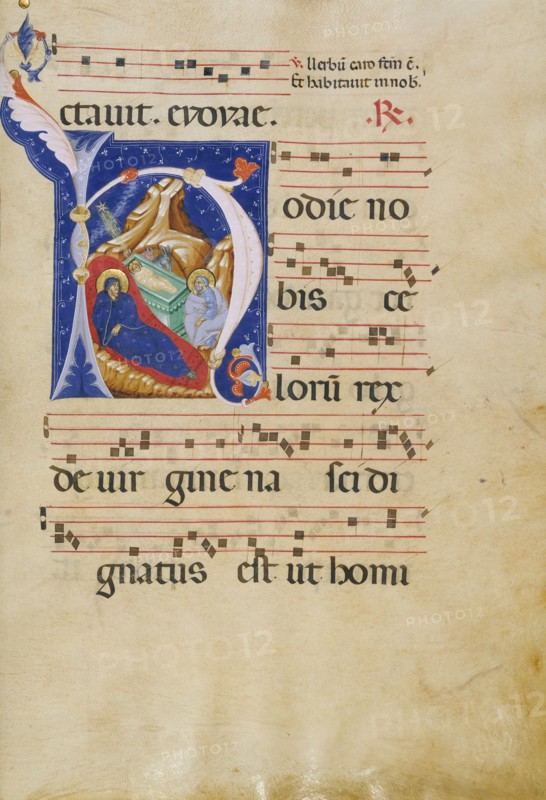 ℣. Uerbū caro fctm ē.
Et habitauit in nob.
ctauit. evovae. .℟.
Hodie no
bis ce
lorū rex
de uir gine na sci di
gnatus est ut homi
PHOTO12